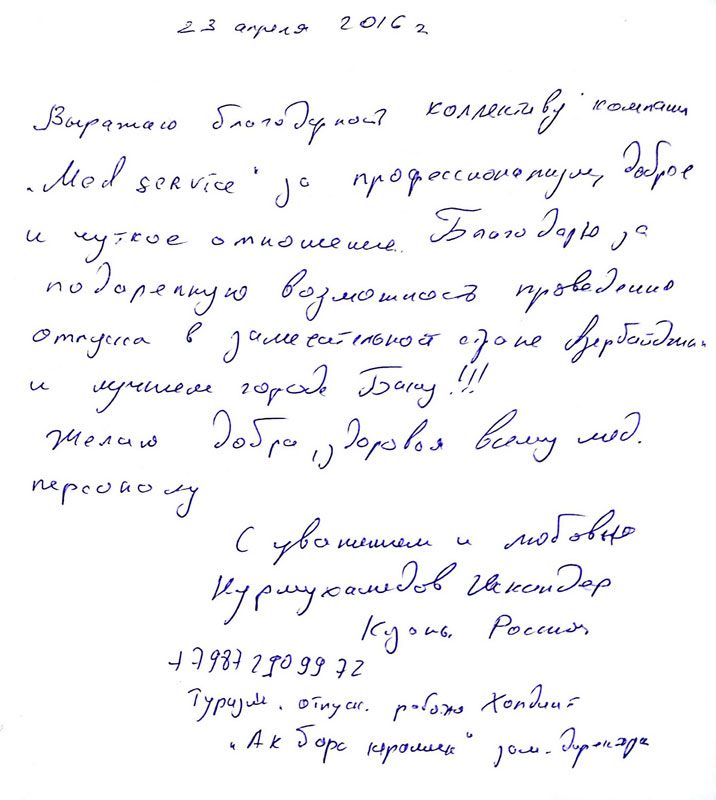 23 апреля 2016 г
Выражаю благодарность коллективу компании
"Med service" за профессионализм, доброе
и чуткое отношение. Благодарю за
подаренную возможность проведению
отпуска в замечательной стране Азербайджан
и лучшем городе Баку!!!
Желаю добра, здоровья всему мед.
персоналу
С уважением и любовью
Нурмухамедов Искандер
Казань Россия
+7987 290 99 72
Туризм. отпуск. работа Холдинг
"Ак барс керамик" зам. директора